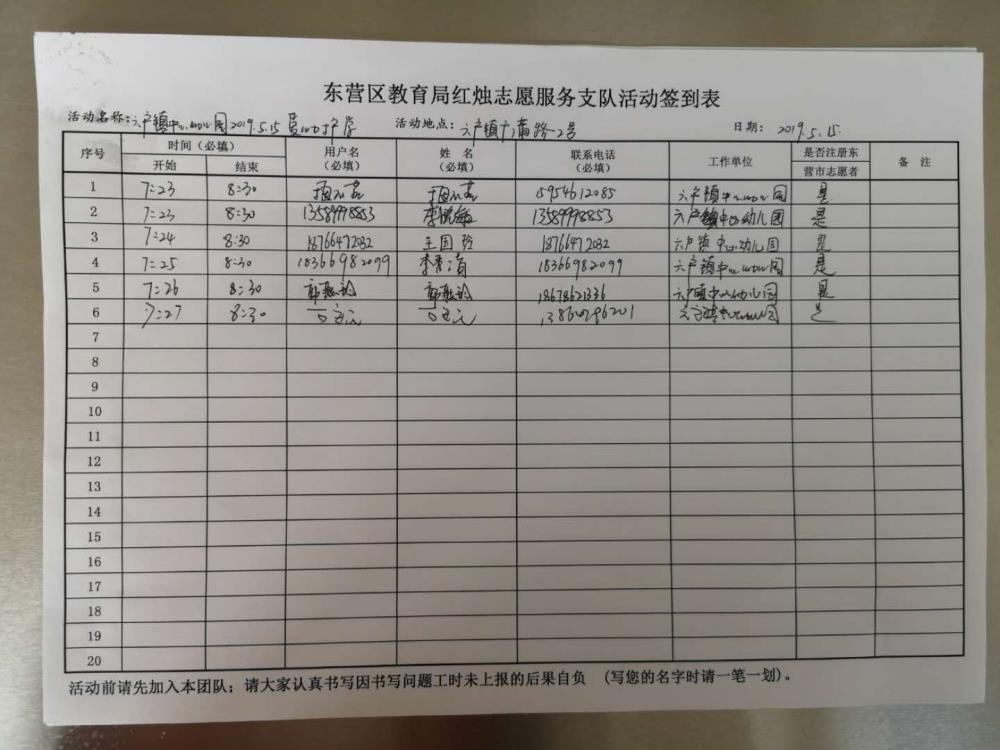 东营区教育局红烛志愿服务支队活动签到表
活动名称：六户镇中心幼儿园2019.5.15 活动地点：六户镇 路-2号 日期： 2019.5.15.
序号 时间（必填） 用户名（必填） 姓名（必填） 联系电话（必填） 工作单位 是否注册东营市志愿者 备 注
开始 结束
1 7:23 8:30 15954612085 六户镇中心幼儿园 是
2 7:23 8:30 13589998853 李悦敏 13589998853 六户镇中心幼儿园 是
3 7:24 8:30 18766472032 王国玲 18766472032 六户镇中心幼儿园 是
4 7:25 8:30 18366982099 李秀清 18366982099 六户镇中心幼儿园 是
5 7:26 8:30 18678621336 六户镇中心幼儿园 是
6 7:27 8:30 六户镇中心幼儿园 是
7
8
9
10
11
12
13
14
15
16
17
18
19
20
活动前请先加入本团队；请大家认真书写因书写问题工时未上报的后果自负 （写您的名字时请一笔一划）。